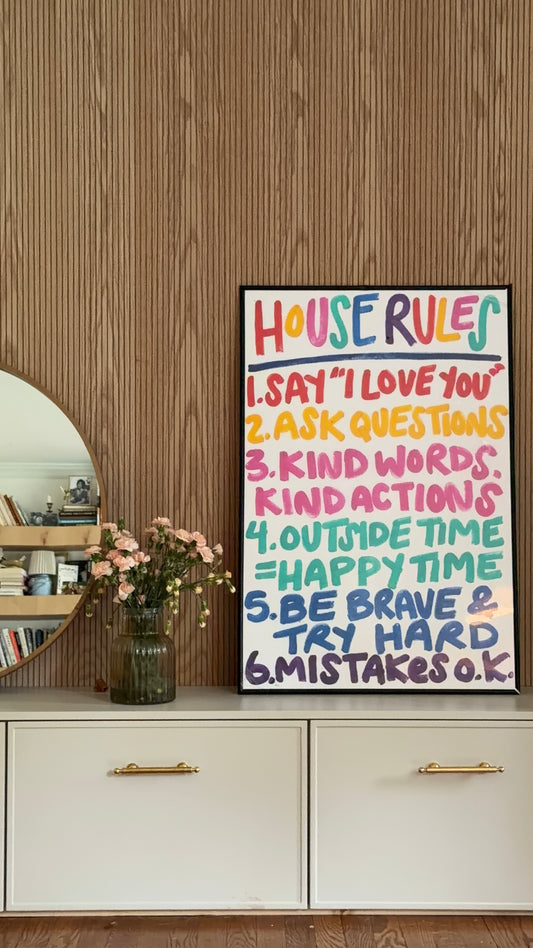 HOUSE RULES
1. SAY "I LOVE YOU"
2. ASK QUESTIONS
3. KIND WORDS.
KIND ACTIONS
4. OUTSIDE TIME
=HAPPY TIME
5. BE BRAVE &
TRY HARD
6. MISTAKES O.K.